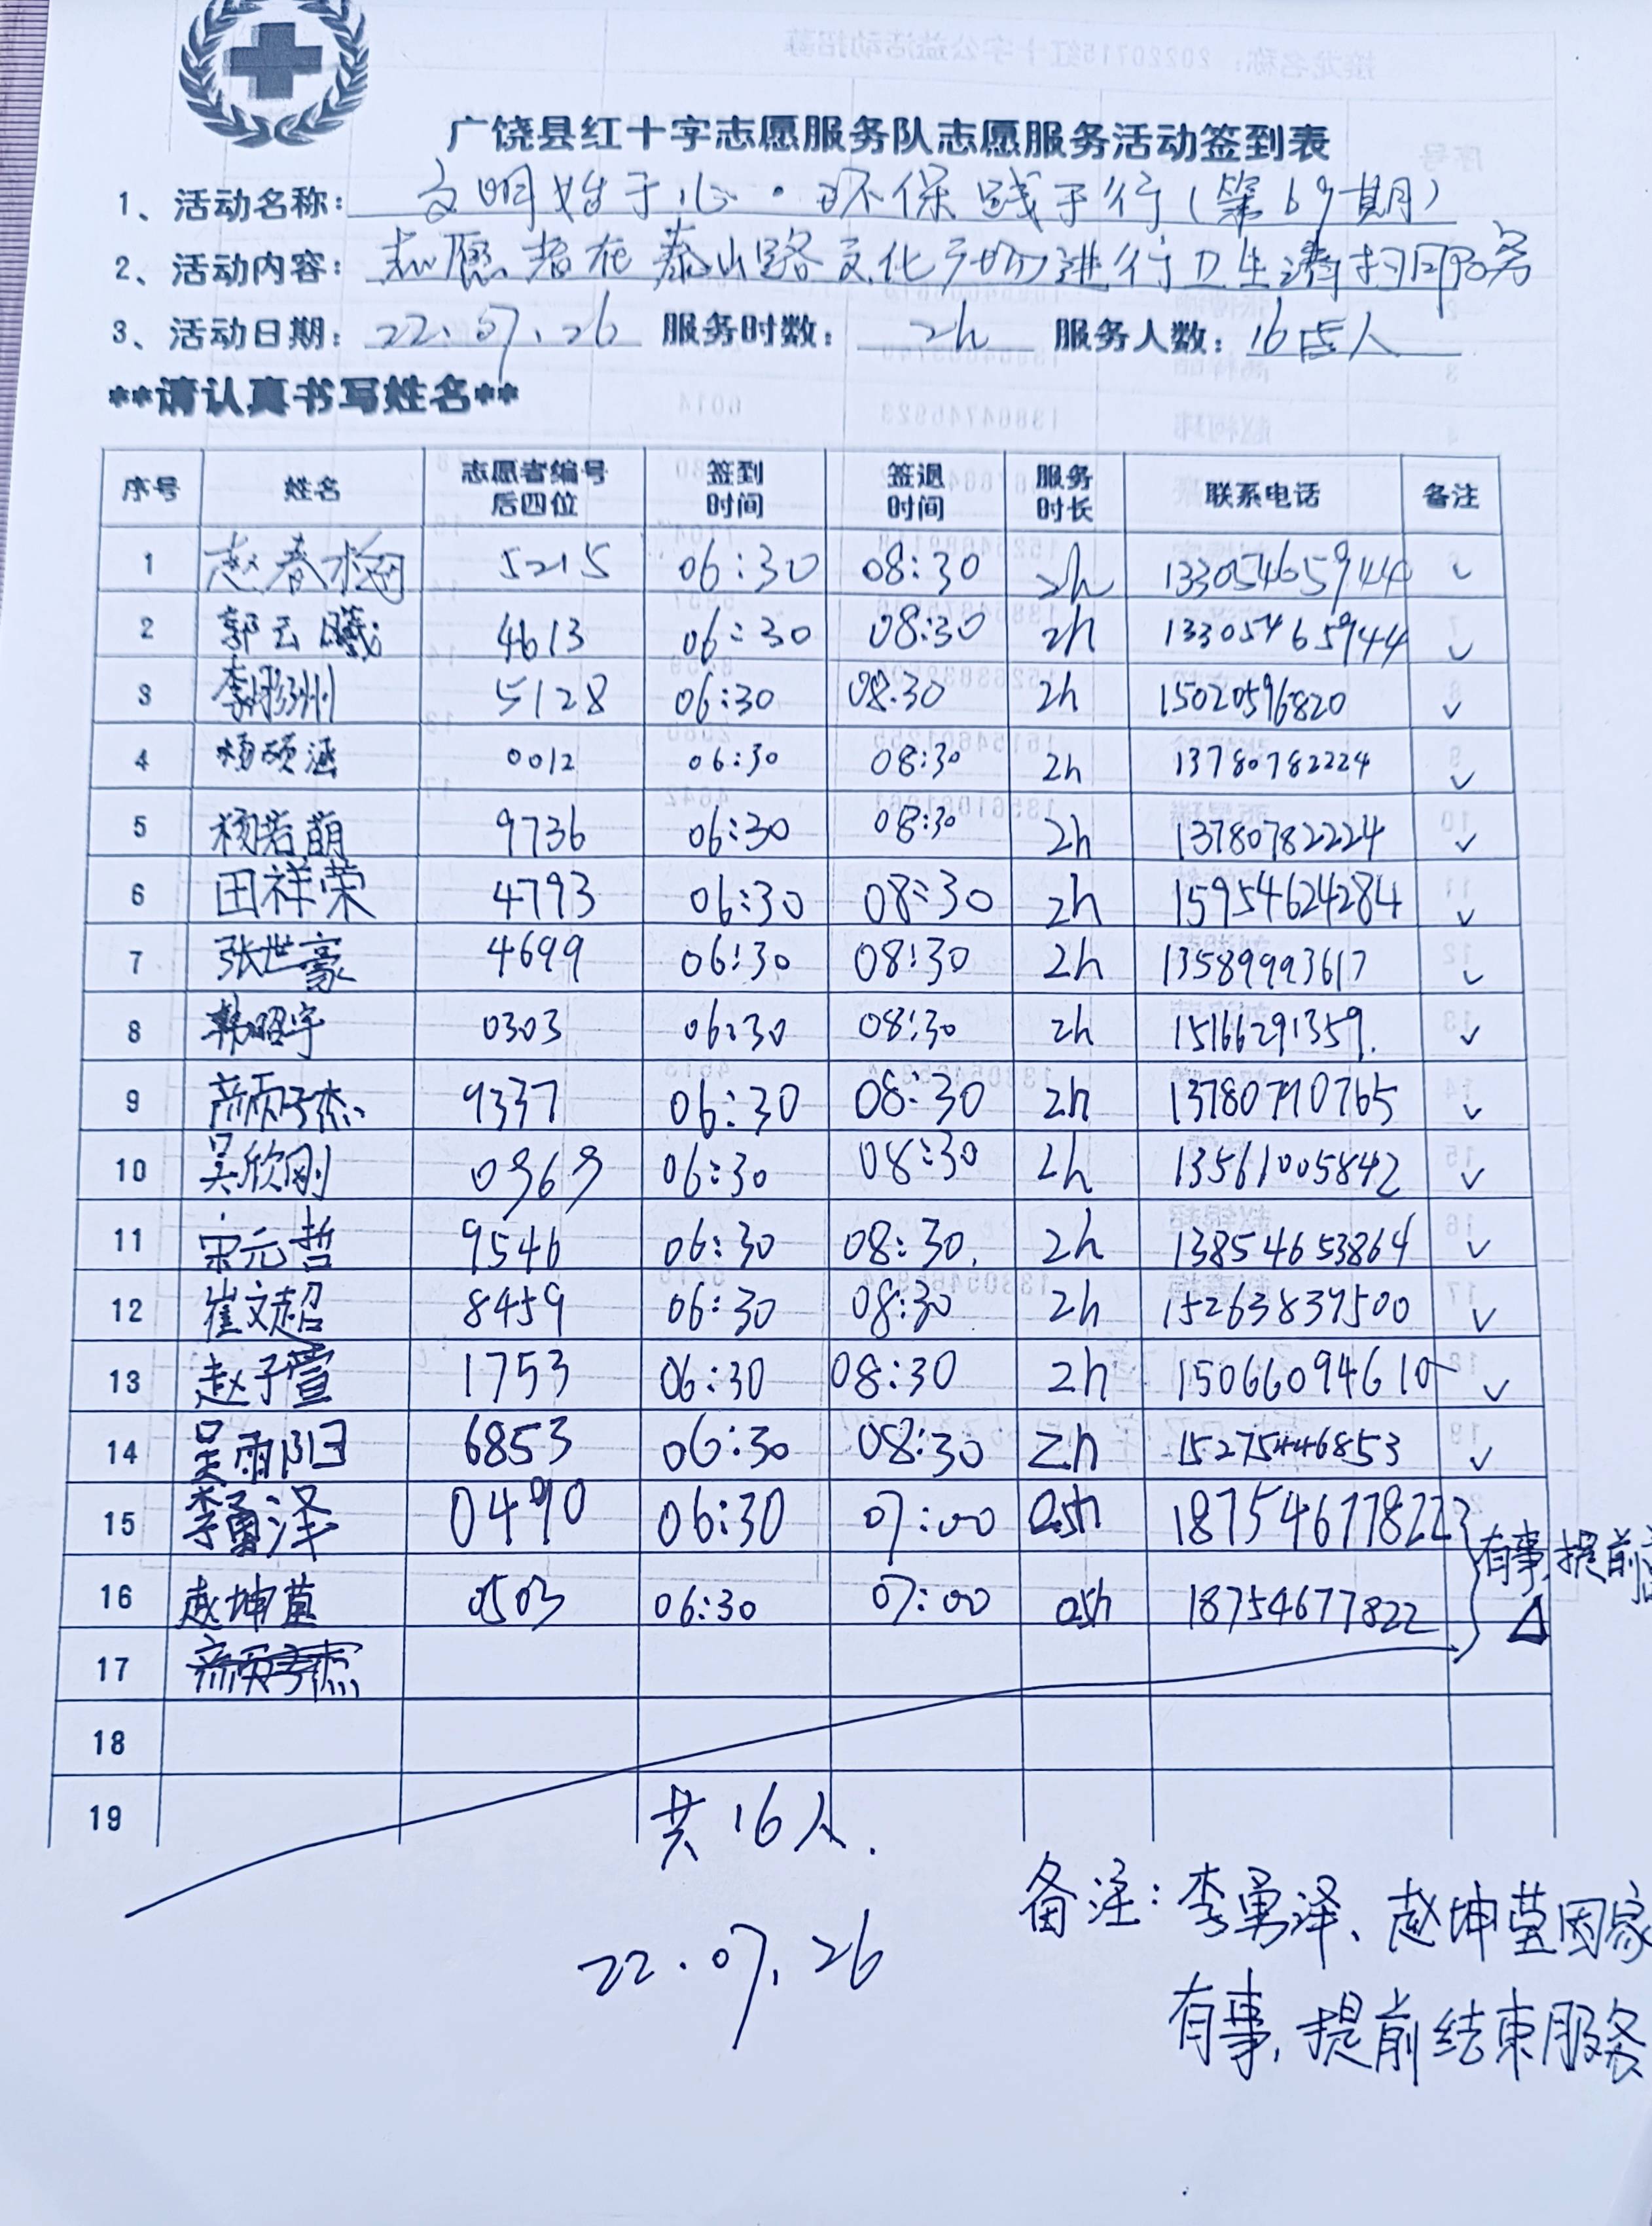 广饶县红十字志愿服务队志愿服务活动签到表
1、活动名称：文明始于心·环保践于行（第69期）
2、活动内容：志愿者在泰山路文化广场进行卫生清扫服务
3、活动日期：22.07.26 服务时数：2h 服务人数：16人
**请认真书写姓名**
序号 姓名 志愿者编号后四位 签到时间 签退时间 服务时长 联系电话 备注
1 赵春梅 5215 06:30 08:30 2h 13305465944 ✓
2 郭云曦 4613 06:30 08:30 2h 13305465944 ✓
3 李彤州 5128 06:30 08:30 2h 15020596820 ✓
4 杨硕涵 0012 06:30 08:30 2h 13780782224 ✓
5 杨若萌 9736 06:30 08:30 2h 13780782224 ✓
6 田祥荣 4793 06:30 08:30 2h 15954624284 ✓
7 张世豪 4699 06:30 08:30 2h 13589993617 ✓
8 韩昭宇 0303 06:30 08:30 2h 15166291359. ✓
9 9337 06:30 08:30 2h 13780790765 ✓
10 吴欣刚 0969 06:30 08:30 2h 13561005842 ✓
11 宋元哲 9546 06:30 08:30. 2h 13854653864 ✓
12 崔文超 8459 06:30 08:30 2h 15263837500 ✓
13 赵子萱 1753 06:30 08:30 2h 15066094610 ✓
14 吴雨阳 6853 06:30 08:30 2h 15275446853 ✓
15 李勇泽 0490 06:30 07:00 0.5h 18754677822 有事,提前
16 赵坤莹 0503 06:30 07:00 0.5h 18754677822
17
18
19
共16人.
22.07.26
备注：李勇泽、赵坤莹因家
有事,提前结束服务